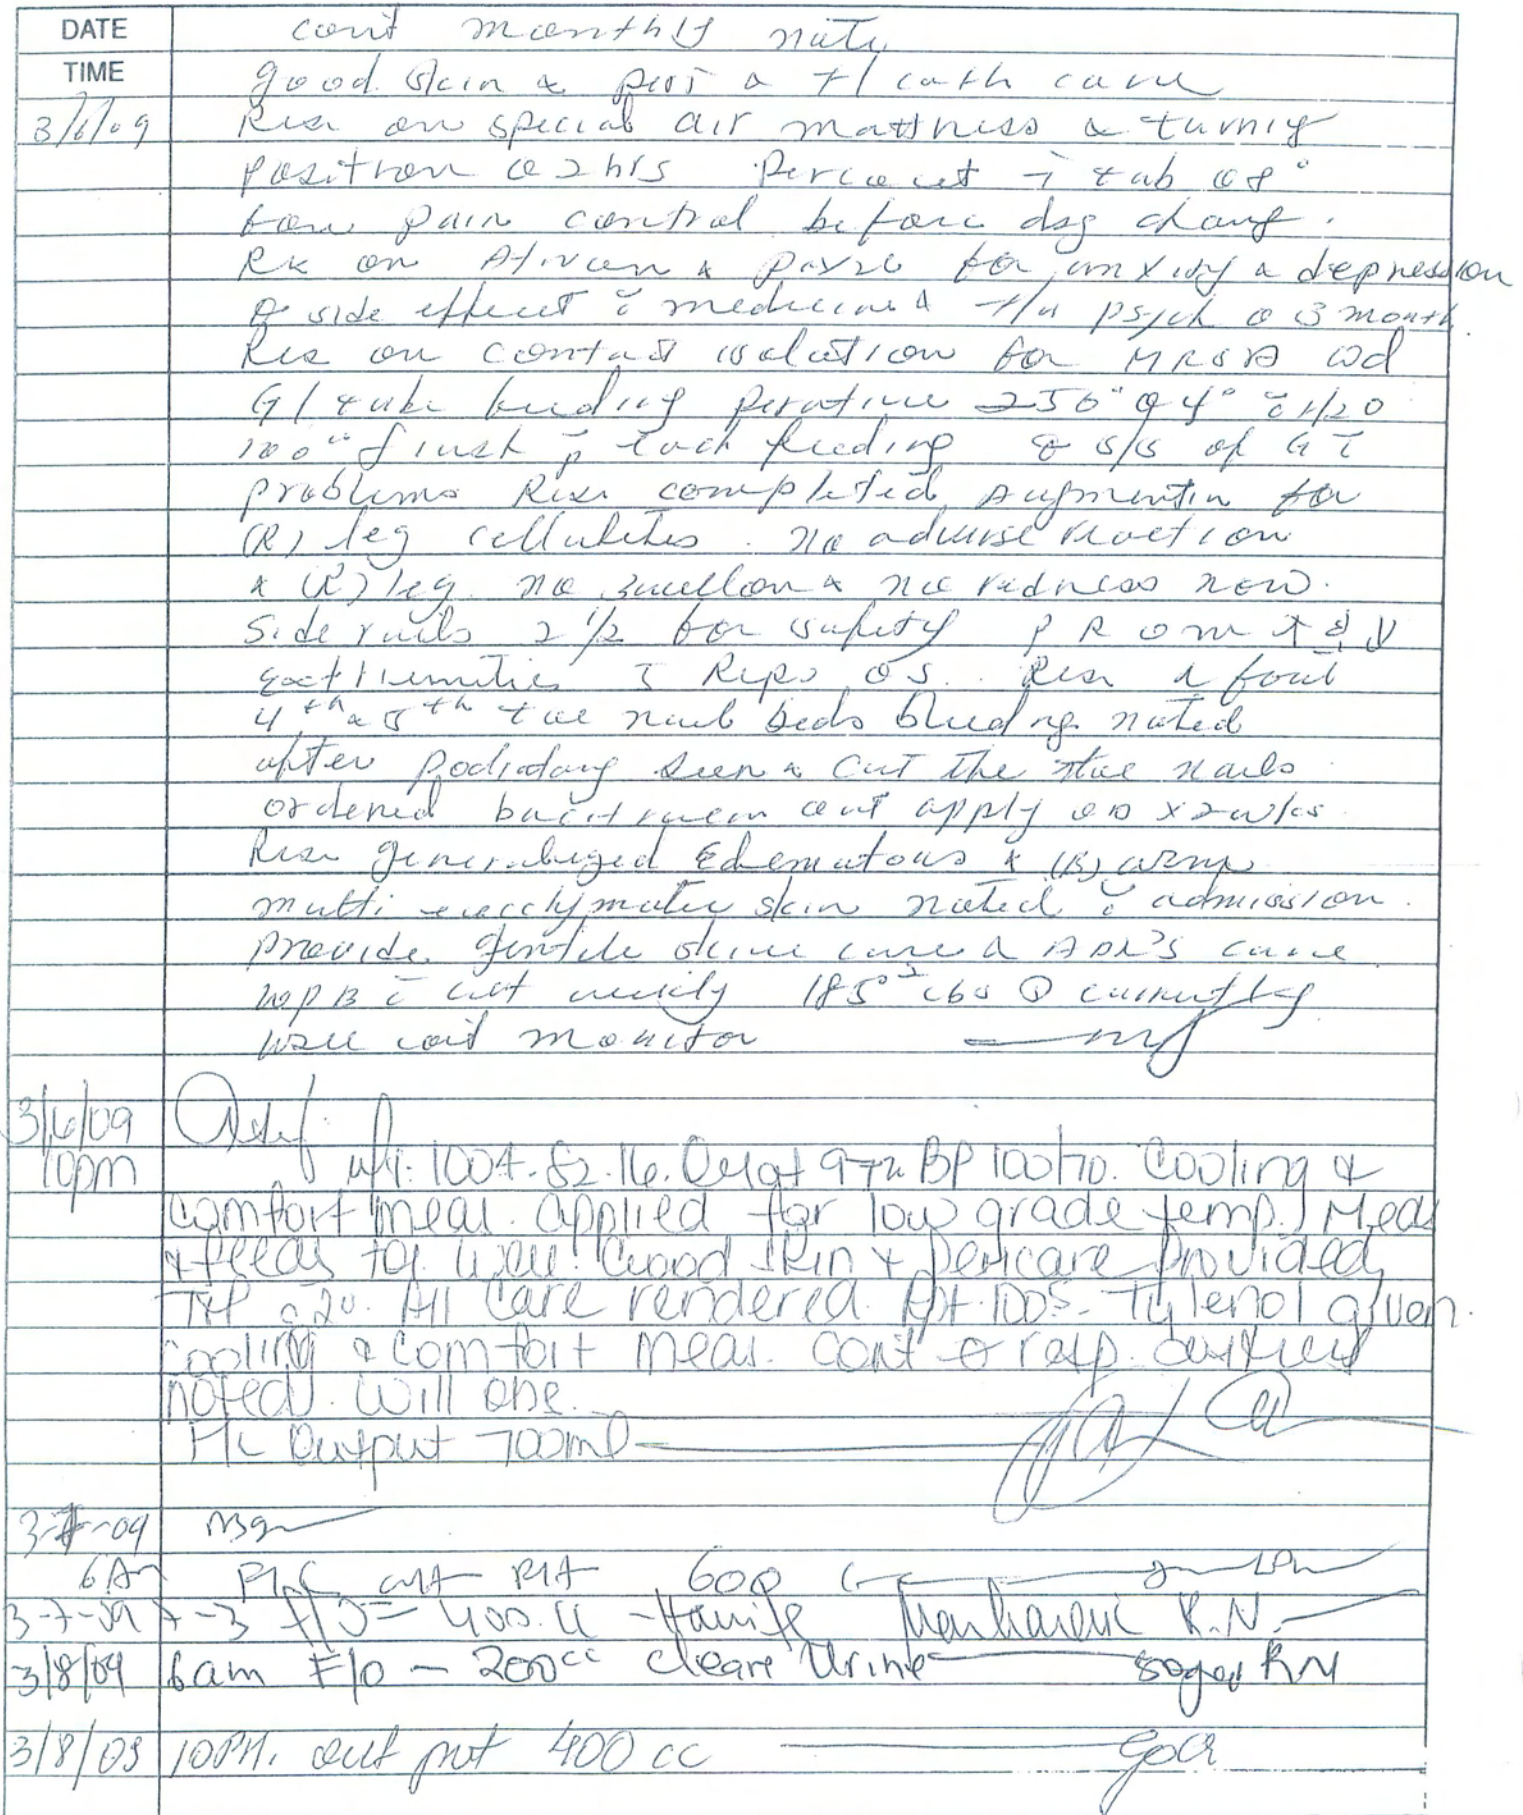 DATE cont monthly note
TIME good skin & peri & F/ cath care
3/6/09 Res on special air mattress & turnig
position Q 2 hrs Percocet ī tab Q8°
for pain control before dsg chang.
Res on Ativan & Paxil for anxiety & depression
ø side effect c̄ medicine & F/u psych Q 3 month
Res on contact isolation for MRSA wd
G/tube feeding perative 250cc Q 4° c̄ H20
100cc flush p̄ each feeding ø s/s of GT
problems Res completed Augmentin for
(R) leg cellulites. no adverse reaction
& (R) leg no swellon & no redness now.
Side rails 2 1/2 for safety PROM ↑ & ↓
extremities 5 Reps QS. Res foul
4th & 5th toe nail beds bleeding noted
after podiatry seen & cut the toe nails
ordered bacitracin oint apply QD x 2 wks
Res generalized Edematous & (B) arms
multi ecchymotic skin noted c̄ admission.
Provide gentle skin care & ADL'S care
weekly 185.2 lbs currently
will cont monitor
3/6/09
10pm 100.4-82-16. O2 sat 97% BP 100/70. Cooling &
comfort meas. applied for low grade temp. Meds
& feeds tol. well. Good skin & pericare provided,
T+P q 2°. All care rendered. 100.5- Tylenol given.
cooling & comfort meas. cont ø resp. distress
noted. Will obs.
F/c Output 700ml
3-7-09 nsg
6Am F/c out put 600 cc
3-7-09 7-3 F/O = 400.cc R.N.
3/8/09 6am F/o - 200cc cleare Urine RN
3/8/09 10PM. out put 400 cc